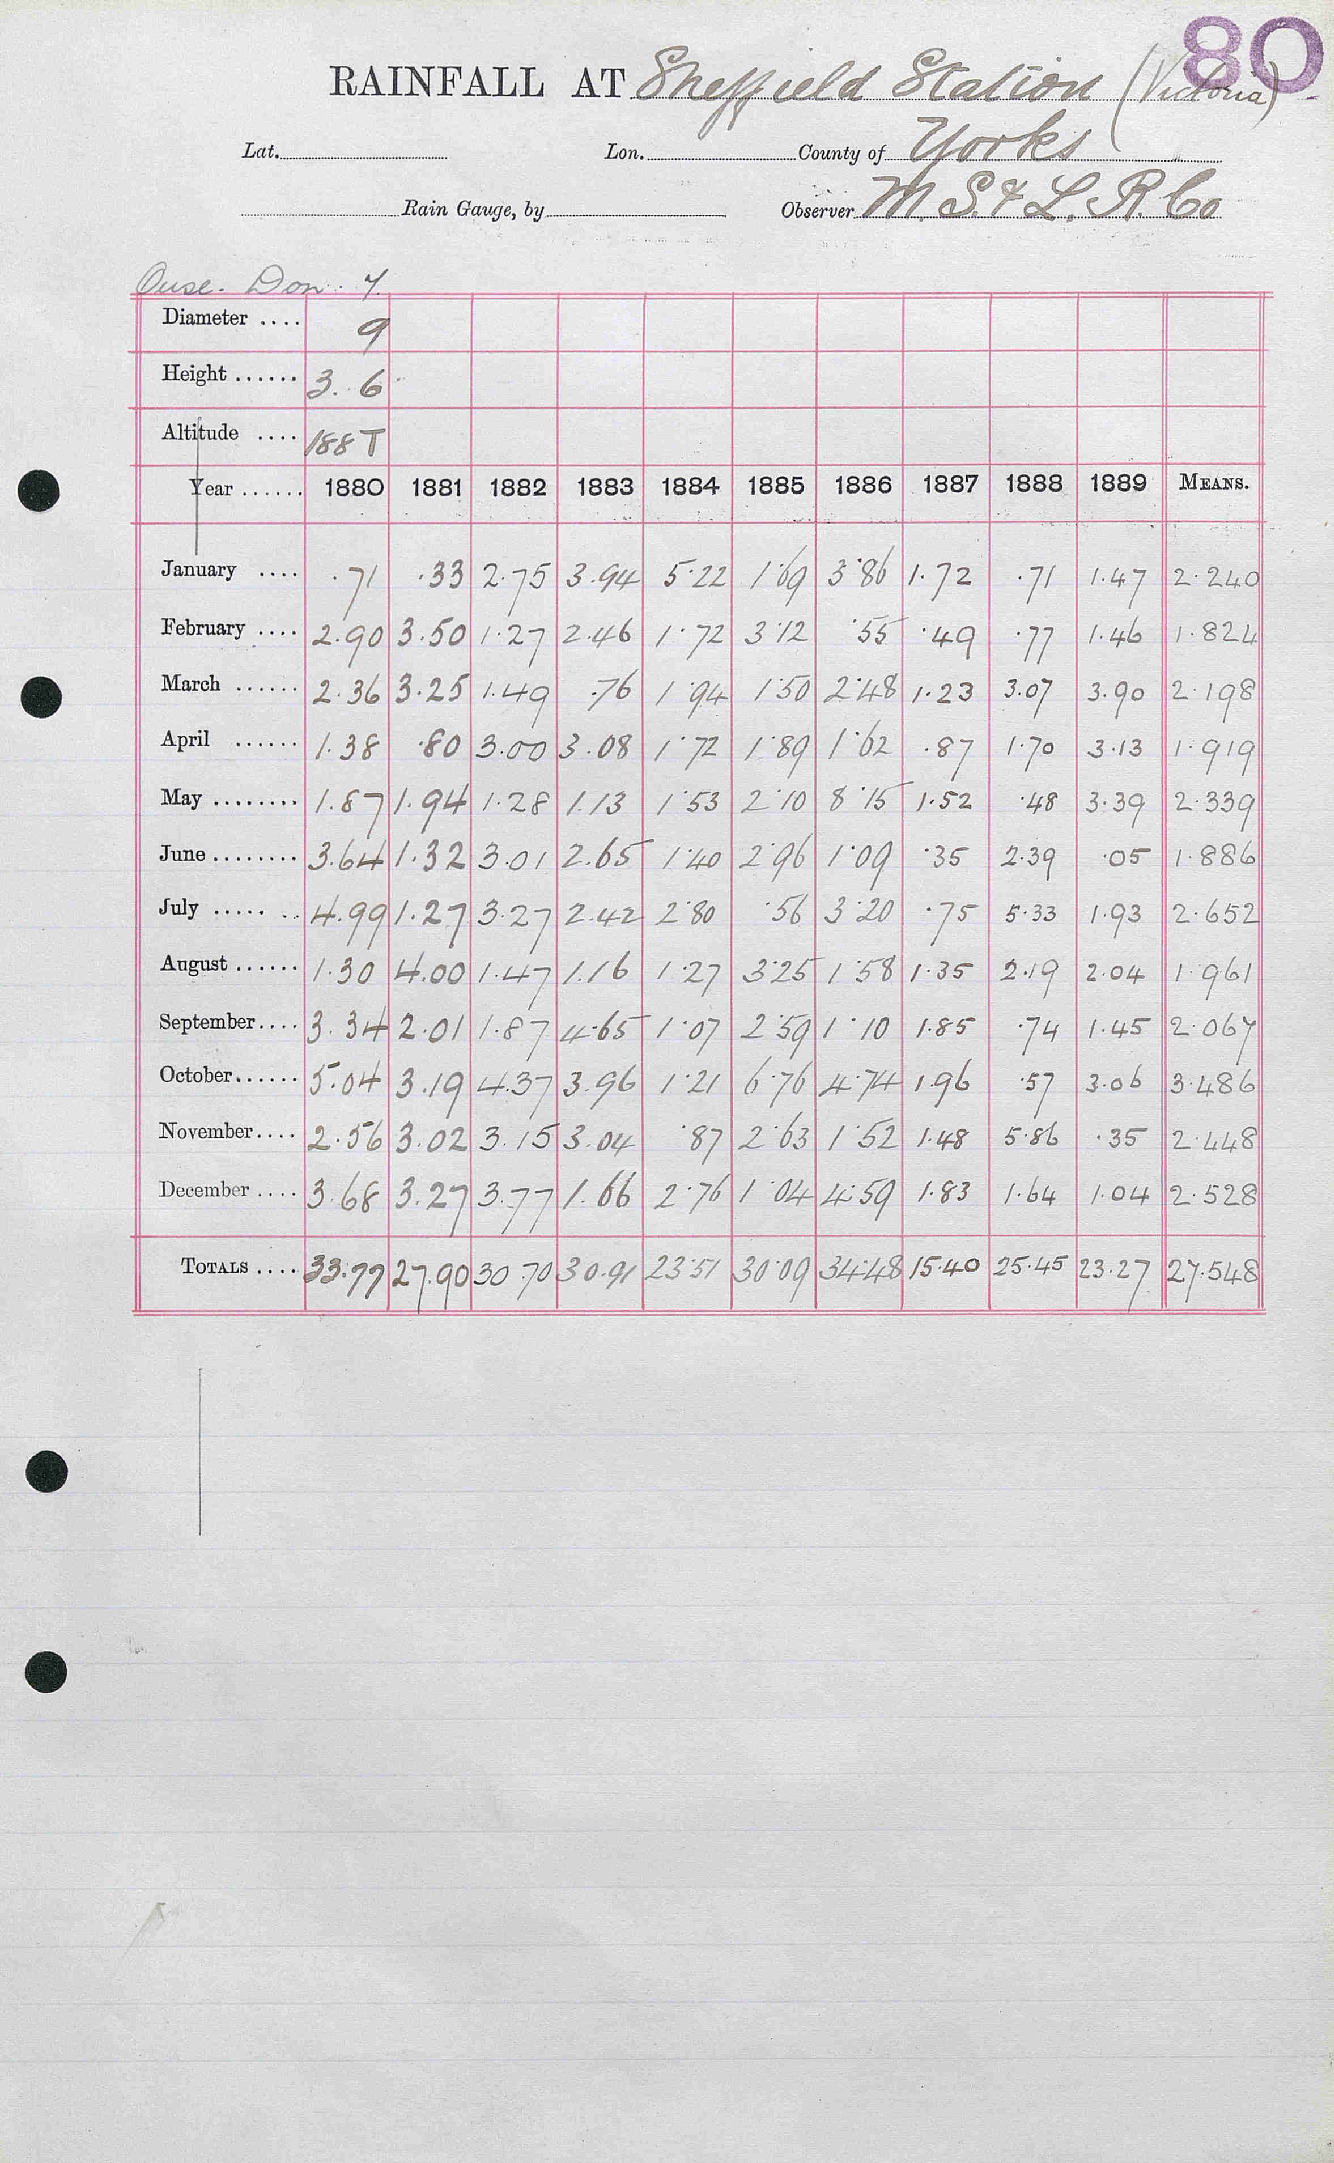 80
RAINFALL AT Sheffield Station (Victoria)
Lat. Lon. County of Yorks
Rain Gauge, by Observer M. S. & L. R. Co
Ouse. Don. 7.
Diameter .... 9
Height ...... 3. 6
Altitude .... 188 T
Year ...... 1880 1881 1882 1883 1884 1885 1886 1887 1888 1889 MEANS.
January .... .71 .33 2.75 3.94 5.22 1.69 3.86 1.72 .71 1.47 2.240
February .... 2.90 3.50 1.27 2.46 1.72 3.12 .55 .49 .77 1.46 1.824
March ...... 2.36 3.25 1.49 .76 1.94 1.50 2.48 1.23 3.07 3.90 2.198
April ...... 1.38 .80 3.00 3.08 1.72 1.89 1.62 .87 1.70 3.13 1.919
May ........ 1.87 1.94 1.28 1.13 1.53 2.10 8.15 1.52 .48 3.39 2.339
June ........ 3.64 1.32 3.01 2.65 1.40 2.96 1.09 .35 2.39 .05 1.886
July ..... .. 4.99 1.27 3.27 2.42 2.80 .56 3.20 .75 5.33 1.93 2.652
August ...... 1.30 4.00 1.47 1.16 1.27 3.25 1.58 1.35 2.19 2.04 1.961
September.... 3.34 2.01 1.87 4.65 1.07 2.59 1.10 1.85 .74 1.45 2.067
October...... 5.04 3.19 4.37 3.96 1.21 6.76 4.74 1.96 .57 3.06 3.486
November.... 2.56 3.02 3.15 3.04 .87 2.63 1.52 1.48 5.86 .35 2.448
December .... 3.68 3.27 3.77 1.66 2.76 1.04 4.59 1.83 1.64 1.04 2.528
TOTALS .... 33.77 27.90 30.70 30.91 23.51 30.09 34.48 15.40 25.45 23.27 27.548